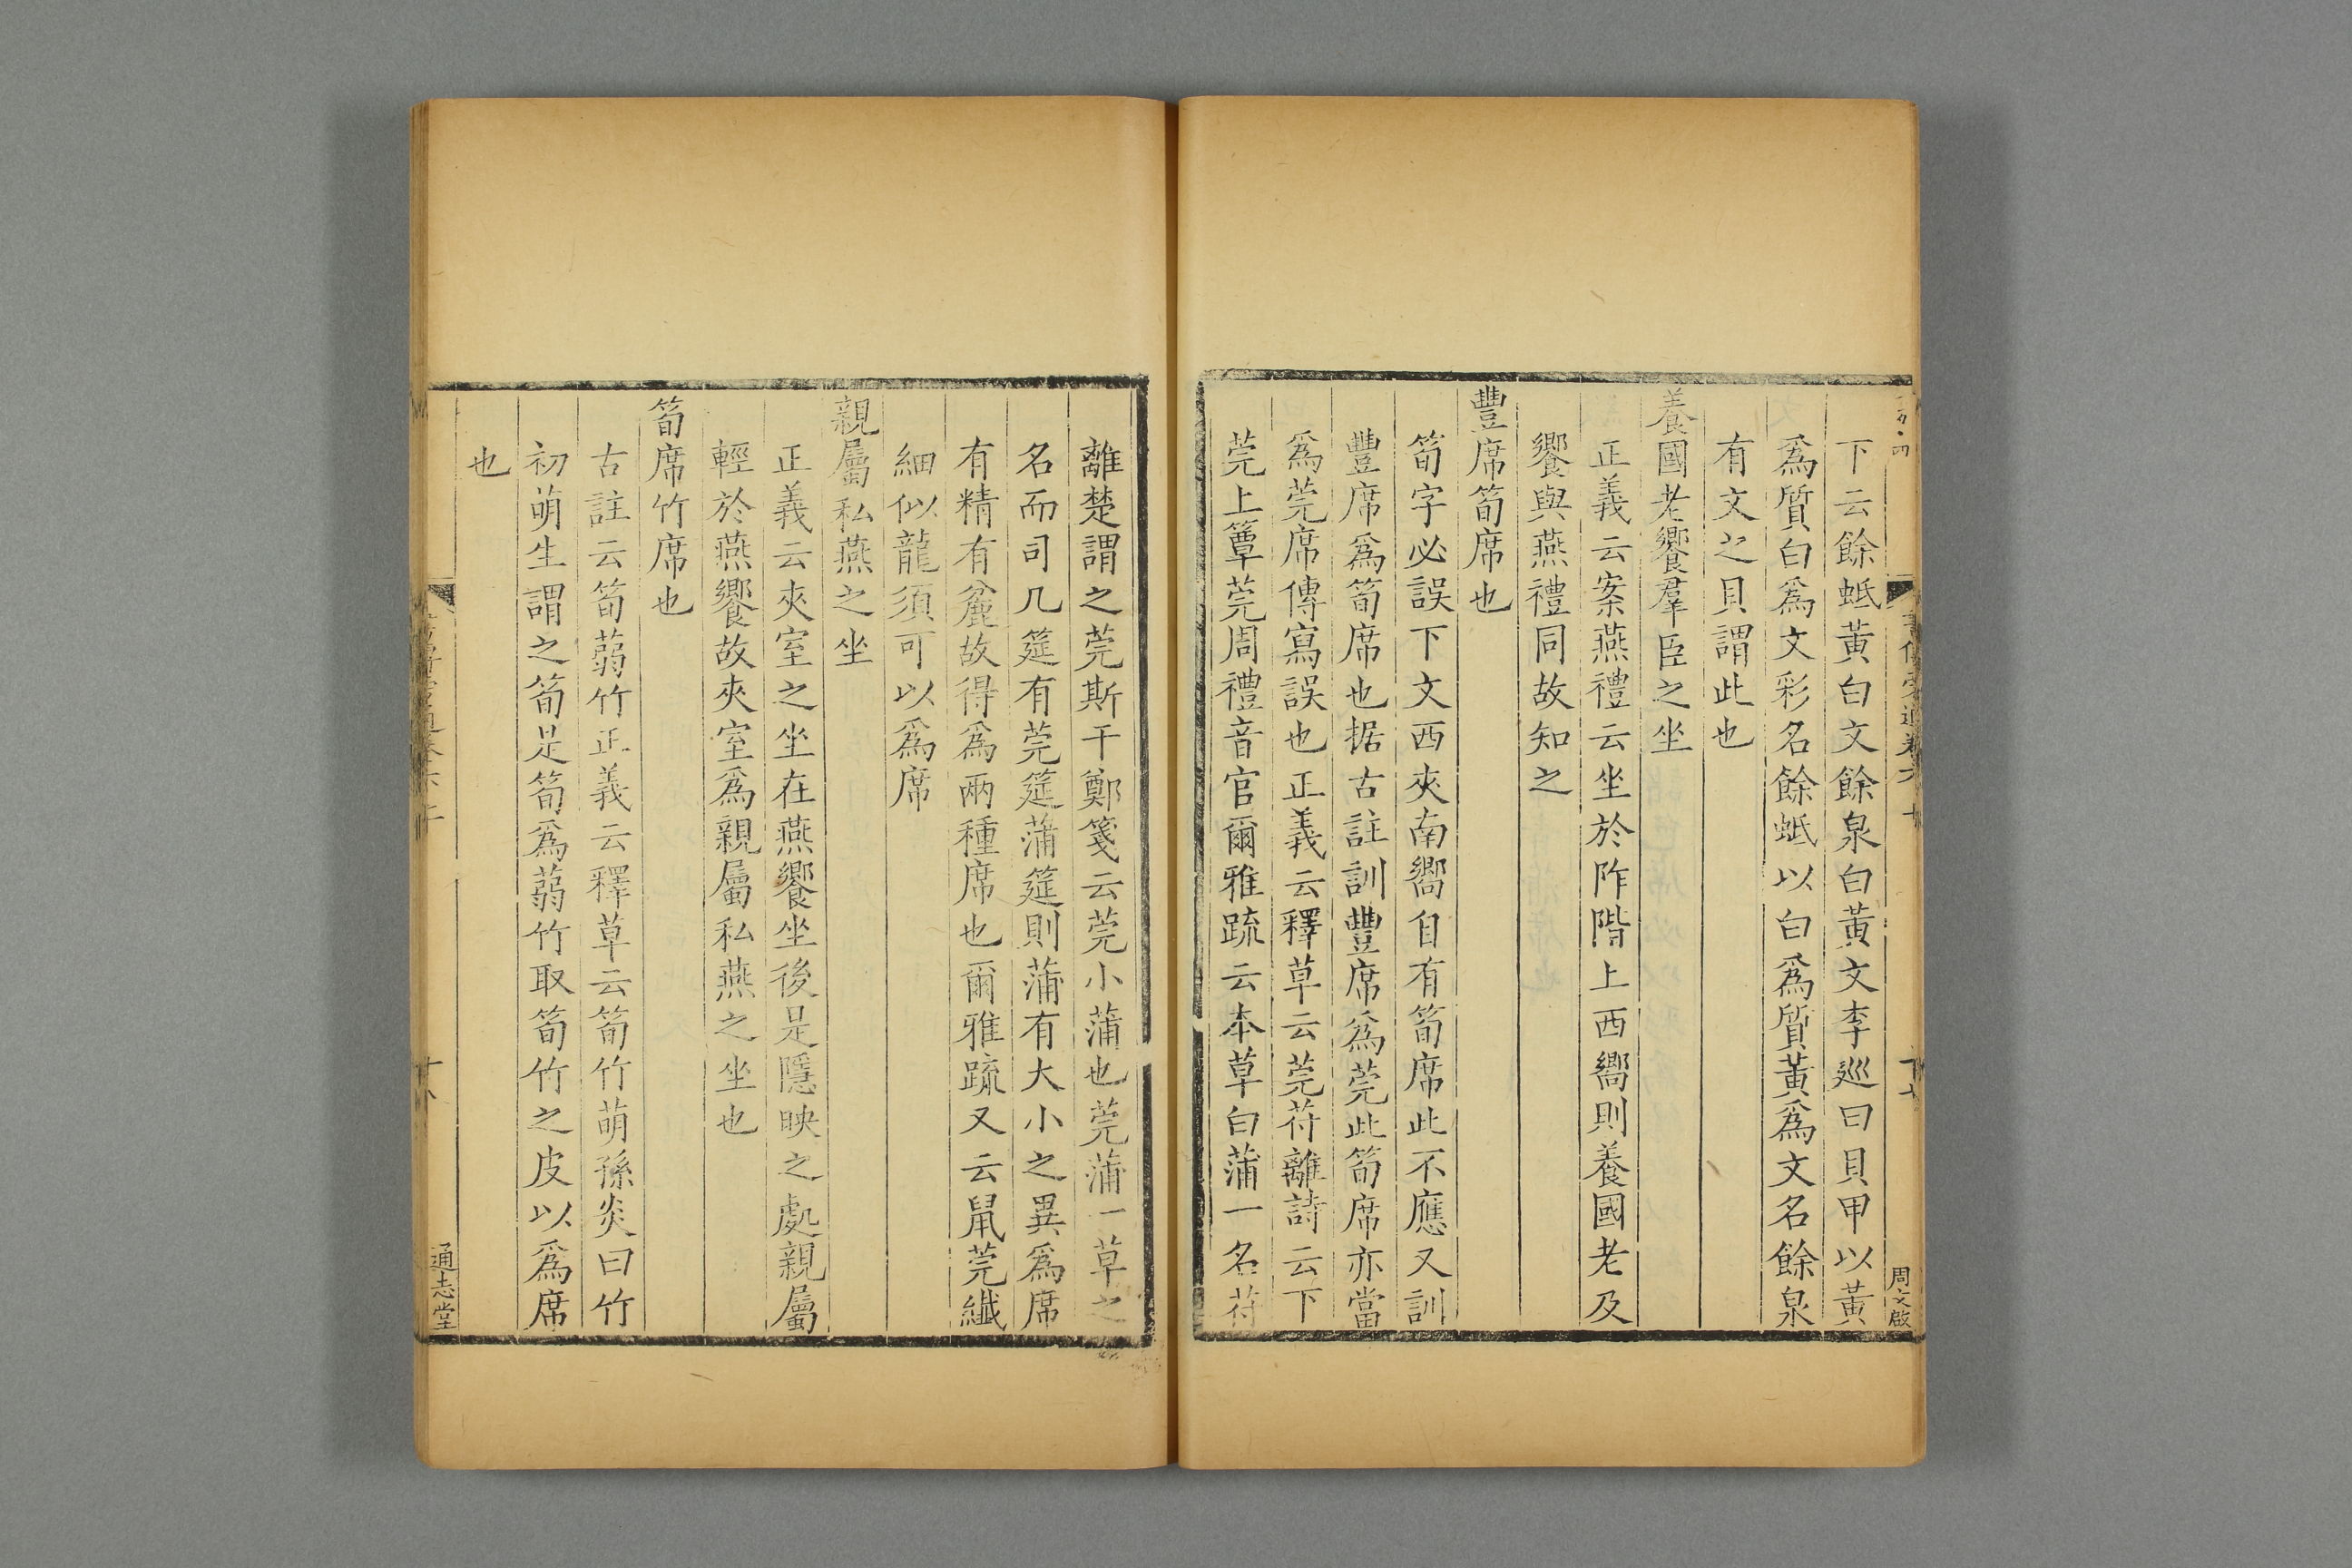 下云餘蚳黃白文餘泉白黃文李巡曰貝甲以黃
爲質白爲文彩名餘蚳以白爲質黃爲文名餘泉
有文之貝謂此也
養國老饗羣臣之坐
正義云案燕禮云坐於阼階上西嚮則養國老及
饗與燕禮同故知之
豐席筍席也
筍字必誤下文西夾南嚮自有筍席此不應又訓
豐席爲筍席也据古註訓豐席爲莞此筍席亦當
爲莞席傳寫誤也正義云釋草云莞苻離詩云下
莞上簟莞周禮音官爾雅疏云本草白蒲一名苻
周文啟
離楚謂之莞斯干鄭箋云莞小蒲也莞蒲一草之
名而司几筵有莞筵蒲筵則蒲有大小之異爲席
有精有麄故得爲兩種席也爾雅疏又云鼠莞纖
細似龍須可以爲席
親屬私燕之坐
正義云夾室之坐在燕饗坐後是隱映之處親屬
輕於燕饗故夾室爲親屬私燕之坐也
筍席竹席也
古註云筍蒻竹正義云釋草云筍竹萌孫炎曰竹
初萌生謂之筍是筍爲蒻竹取筍竹之皮以爲席
也
通志堂